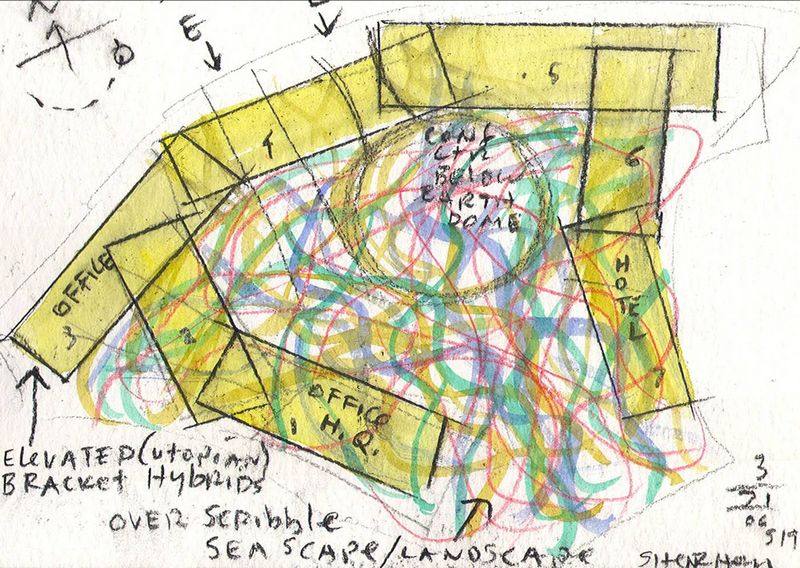 N
E
5
4
CONF
CTR
BELOW
EARTH
DOME
6
OFFICE
3
HOTEL
7
2
OFFICE
H.Q.
1
ELEVATED (UTOPIAN)
BRACKET HYBRIDS
OVER SCRIBBLE
SEASCAPE/LANDSCAPE
3
21
06